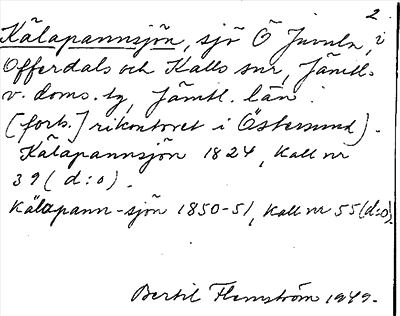 2.
Kälapannsjön, sjö Ö Juvuln, i
Offerdals och Kalls snr, Jämtl.
v. doms. tg, Jämtl. län.
[forts.] rikontoret i Östersund).
Kälapannsjön 1824, Kall nr
39 (d:o).
Kälapann-sjön 1850-51, Kall nr 55 (d:o).
Bertil Flemström 1949.